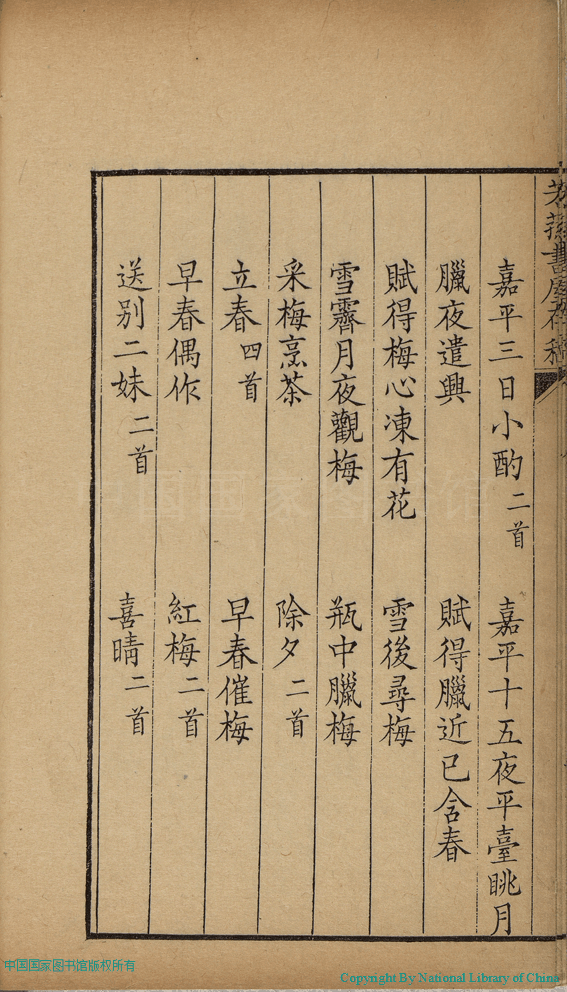 嘉平三日小酌二首　嘉平十五夜平臺眺月
臘夜遣興　賦得臘近已含春
賦得梅心凍有花　雪後尋梅
雪霽月夜觀梅　瓶中臘梅
采梅烹茶　除夕二首
立春四首　早春催梅
早春偶作　紅梅二首
送别二妹二首　喜晴二首
中国国家图书馆
中国国家图书馆版权所有
Copyright By National Library of China